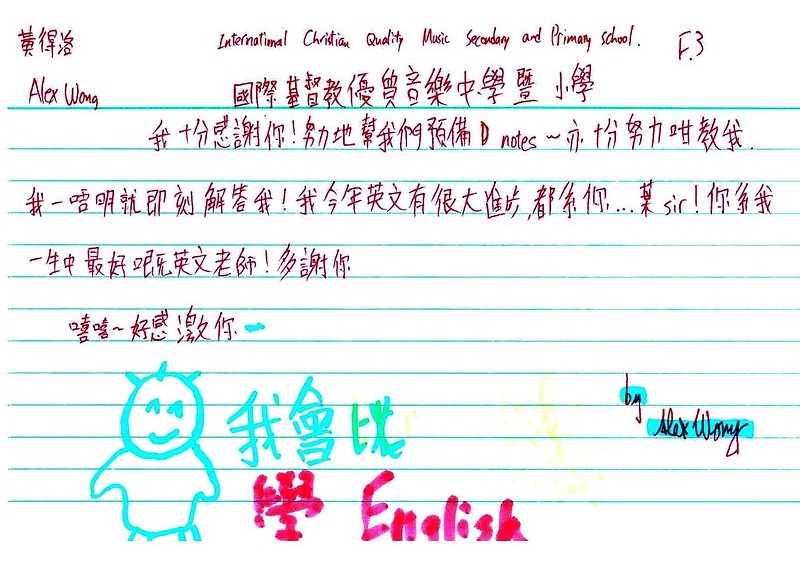 黃得洛
International Christian Quality Music Secondary and Primary School.
F.3
Alex Wong
國際基督教優質音樂中學暨小學
我十份感謝你！努力地幫我們預備D notes~亦十份努力咁教我.
我一唔明就即刻解答我！我今年英文有很大進步,都系你...葉sir！你系我
一生中最好嘅英文老師！多謝你
嘻嘻~好感激你~
我會比
by
Alex Wong
學 English